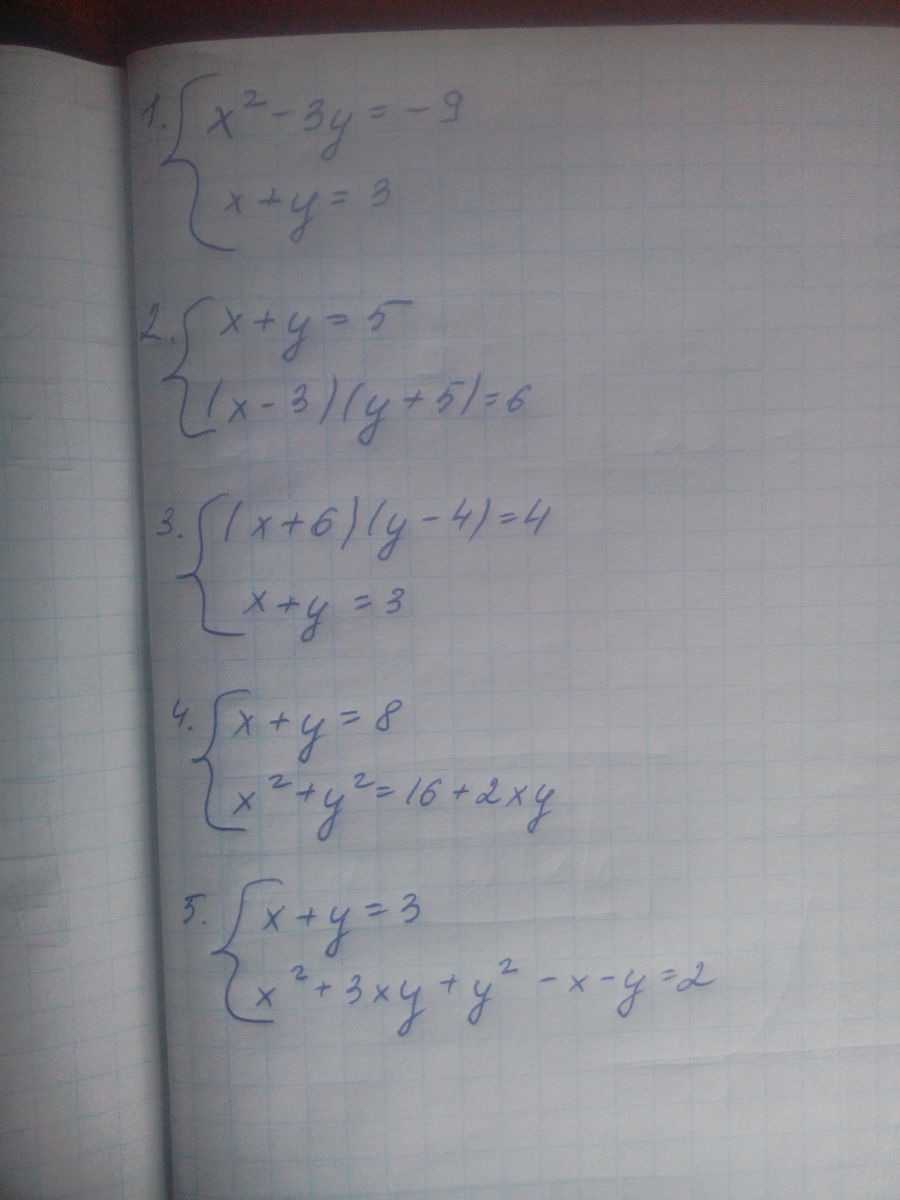 1. { x² - 3y = -9
x + y = 3
2. { x + y = 5
(x - 3)(y + 5) = 6
3. { (x + 6)(y - 4) = 4
x + y = 3
4. { x + y = 8
x² + y² = 16 + 2xy
5. { x + y = 3
x² + 3xy + y² - x - y = 2